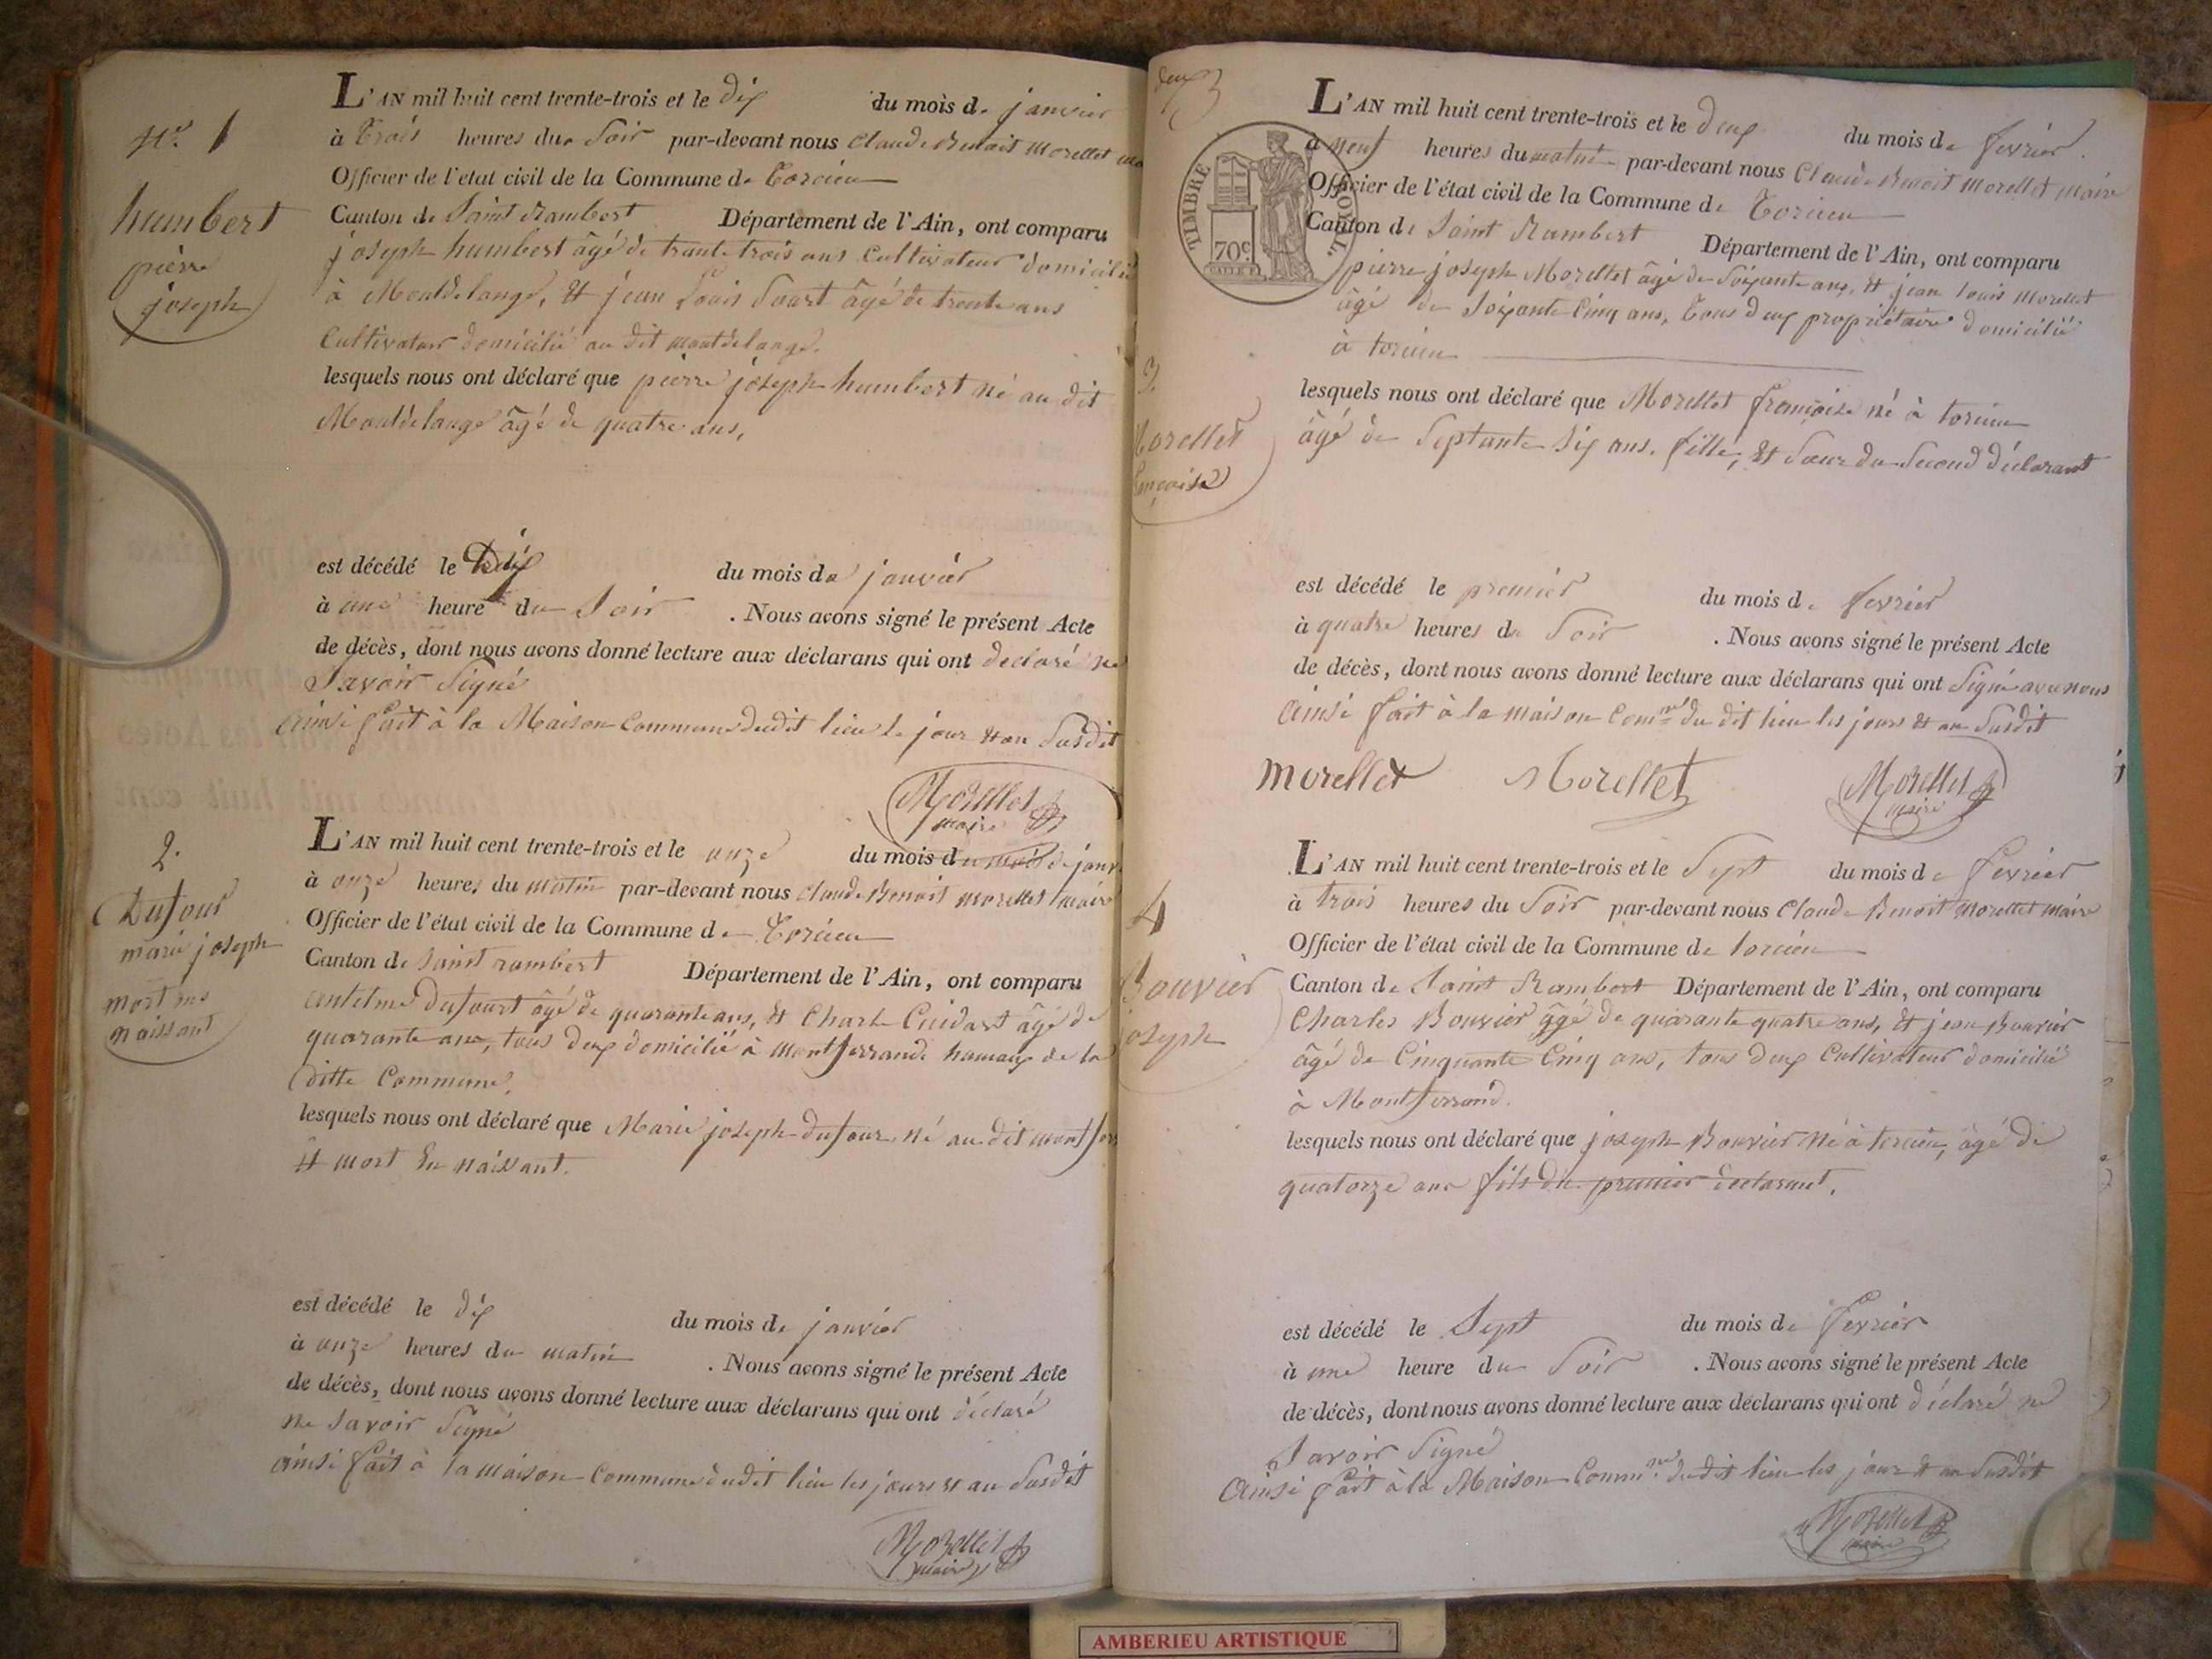 N.º 1
humbert
pierre
joseph
L'AN mil huit cent trente-trois et le dix du mois de janvier
à trois heures du soir par-devant nous Claude Benoit Morellet
Officier de l'etat civil de la Commune de torcieu
Canton de Saint Rambert Département de l'Ain, ont comparu
joseph humbert âgé de trante trois ans Cultivateur domicilié
à Montdelange, Et jean Louis âgé de trente ans
Cultivateur domicilié au dit montdelange.
lesquels nous ont déclaré que pierre joseph humbert né au dit
Montdelange âgé de quatre ans,
est décédé le dix du mois de janvier
à une heure du Soir . Nous avons signé le présent Acte
de décès, dont nous avons donné lecture aux déclarans qui ont declaré ne
Savoir Signé
ainsi fait à la Maison Commune dudit lieu le jour Et an Susdit
Morellet
maire
2.
Dufour
marie joseph
mort
naissant
L'AN mil huit cent trente-trois et le onze du mois du mois de janv
à onze heures du matin par-devant nous Claude Benoit Morellet maire
Officier de l'état civil de la Commune de Torcieu
Canton de Saint rambert Département de l'Ain, ont comparu
antelme dufourt âgé de quarante ans, Et Charle Cuidart âgé de
quarante ans, tous deux domicilié à montferrand hamaux de la
ditte Commune,
lesquels nous ont déclaré que Marie joseph dufour, né au dit montfer
Et mort En naissant.
est décédé le dix du mois de janvier
à onze heures du matin . Nous avons signé le présent Acte
de décès, dont nous avons donné lecture aux déclarans qui ont déclaré
ne Savoir Signé
ainsi fait à la maison Commune dudit lieu les jours Et an Susdit
Morellet
maire
deux
TIMBRE ROYAL
70c
3.
Morellet
françoise
L'AN mil huit cent trente-trois et le deux du mois de fevrier.
à neuf heures du matin par-devant nous Claude Benoit Morellet maire
Officier de l'état civil de la Commune de Torcieu
Canton de Saint Rambert Département de l'Ain, ont comparu
pierre joseph Morellet âgé de Soixante ans, Et jean louis Morellet
âgé de Soixante Cinq ans, tous deux propriétaire domicilié
à torcieu
lesquels nous ont déclaré que Morellet françoise né à torcieu
âgé de Septante Six ans. fille, Et Soeur du Second déclarant
est décédé le premier du mois de fevrier
à quatre heures du Soir . Nous avons signé le présent Acte
de décès, dont nous avons donné lecture aux déclarans qui ont Signé avec nous
ainsi fait à la maison Comm.ne du dit lieu les jours Et an Susdit
morellet Morellet Morellet
maire
4
Bouvier
joseph
L'AN mil huit cent trente-trois et le Sept du mois de fevrier
à trois heures du Soir par-devant nous Claude Benoit Morellet Maire
Officier de l'état civil de la Commune de torcieu
Canton de Saint Rambert Département de l'Ain, ont comparu
Charles Bouvier âgé de quarante quatre ans, Et jean Bouvier
âgé de Cinquante Cinq ans, tous deux Cultivateur domicilié
à Montferrand.
lesquels nous ont déclaré que joseph Bouvier né à torcieu, âgé de
quatorze ans fils du premier declarant.
est décédé le Sept du mois de fevrier
à une heure du Soir . Nous avons signé le présent Acte
de décès, dont nous avons donné lecture aux déclarans qui ont déclaré ne
Savoir Signé
Ainsi fait à la Maison Comm.ne dudit lieu les jour Et an Susdit
Morellet
maire
AMBERIEU ARTISTIQUE